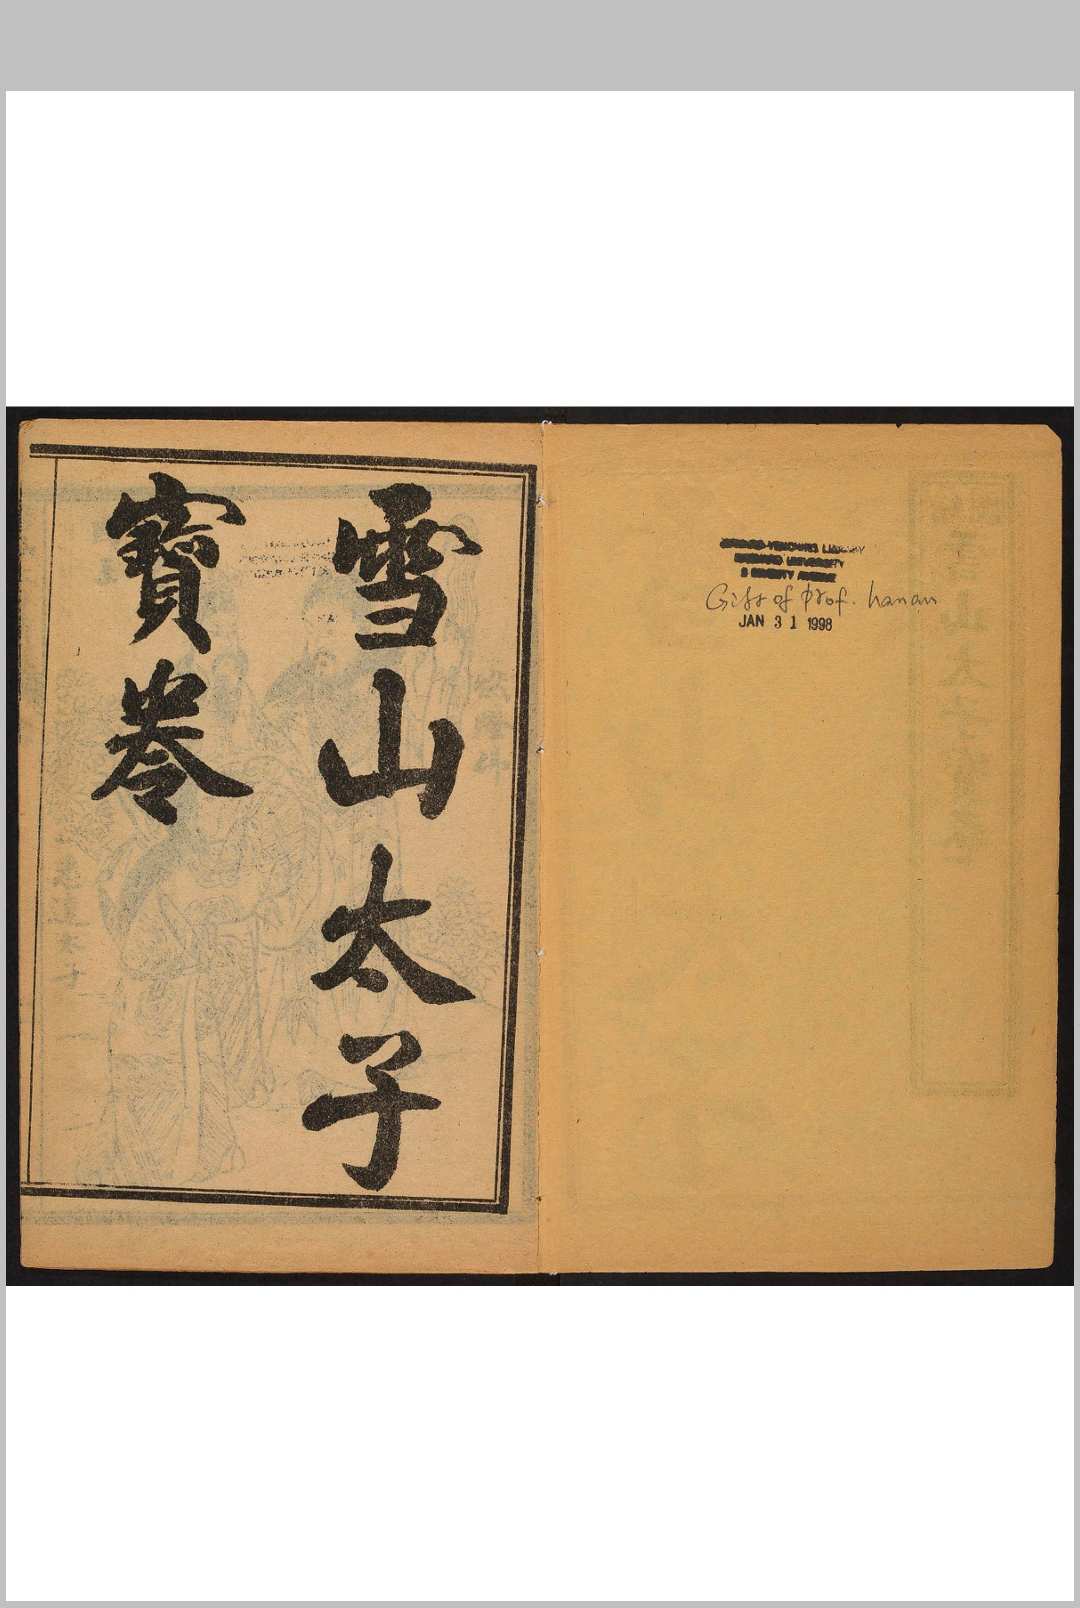 雪山太子
寶卷
HARVARD-YENCHING LIBRARY
HARVARD UNIVERSITY
2 DIVINITY AVENUE
Gift of Prof. Hanan
JAN 31 1998